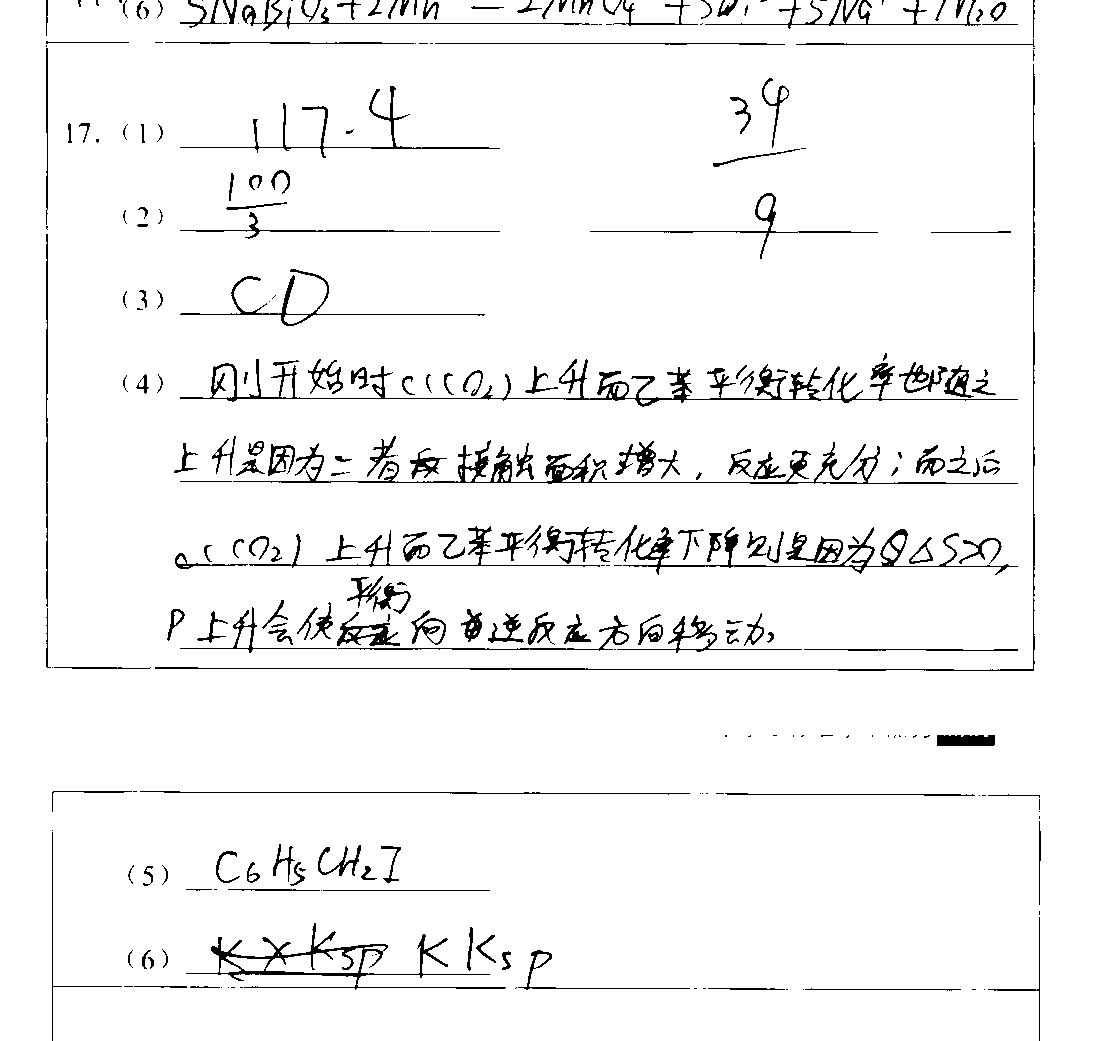 (6) 5NaBiO₃+2Mn = 2MnO₄ +5Bi +5Na⁺ +7H₂O
17.(1) 117.4
(2) 100/3 34/9
(3) CD
(4) 刚开始时c(CO₂)上升而乙苯平衡转化率也随之
上升是因为二者接触面积增大,反应更充分;而之后
c(CO₂)上升而乙苯平衡转化率下降则是因为△S>0,
平衡
P上升会使向逆反应方向移动。
(5) C₆H₅CH₂I
(6) K×Ksp K Ksp